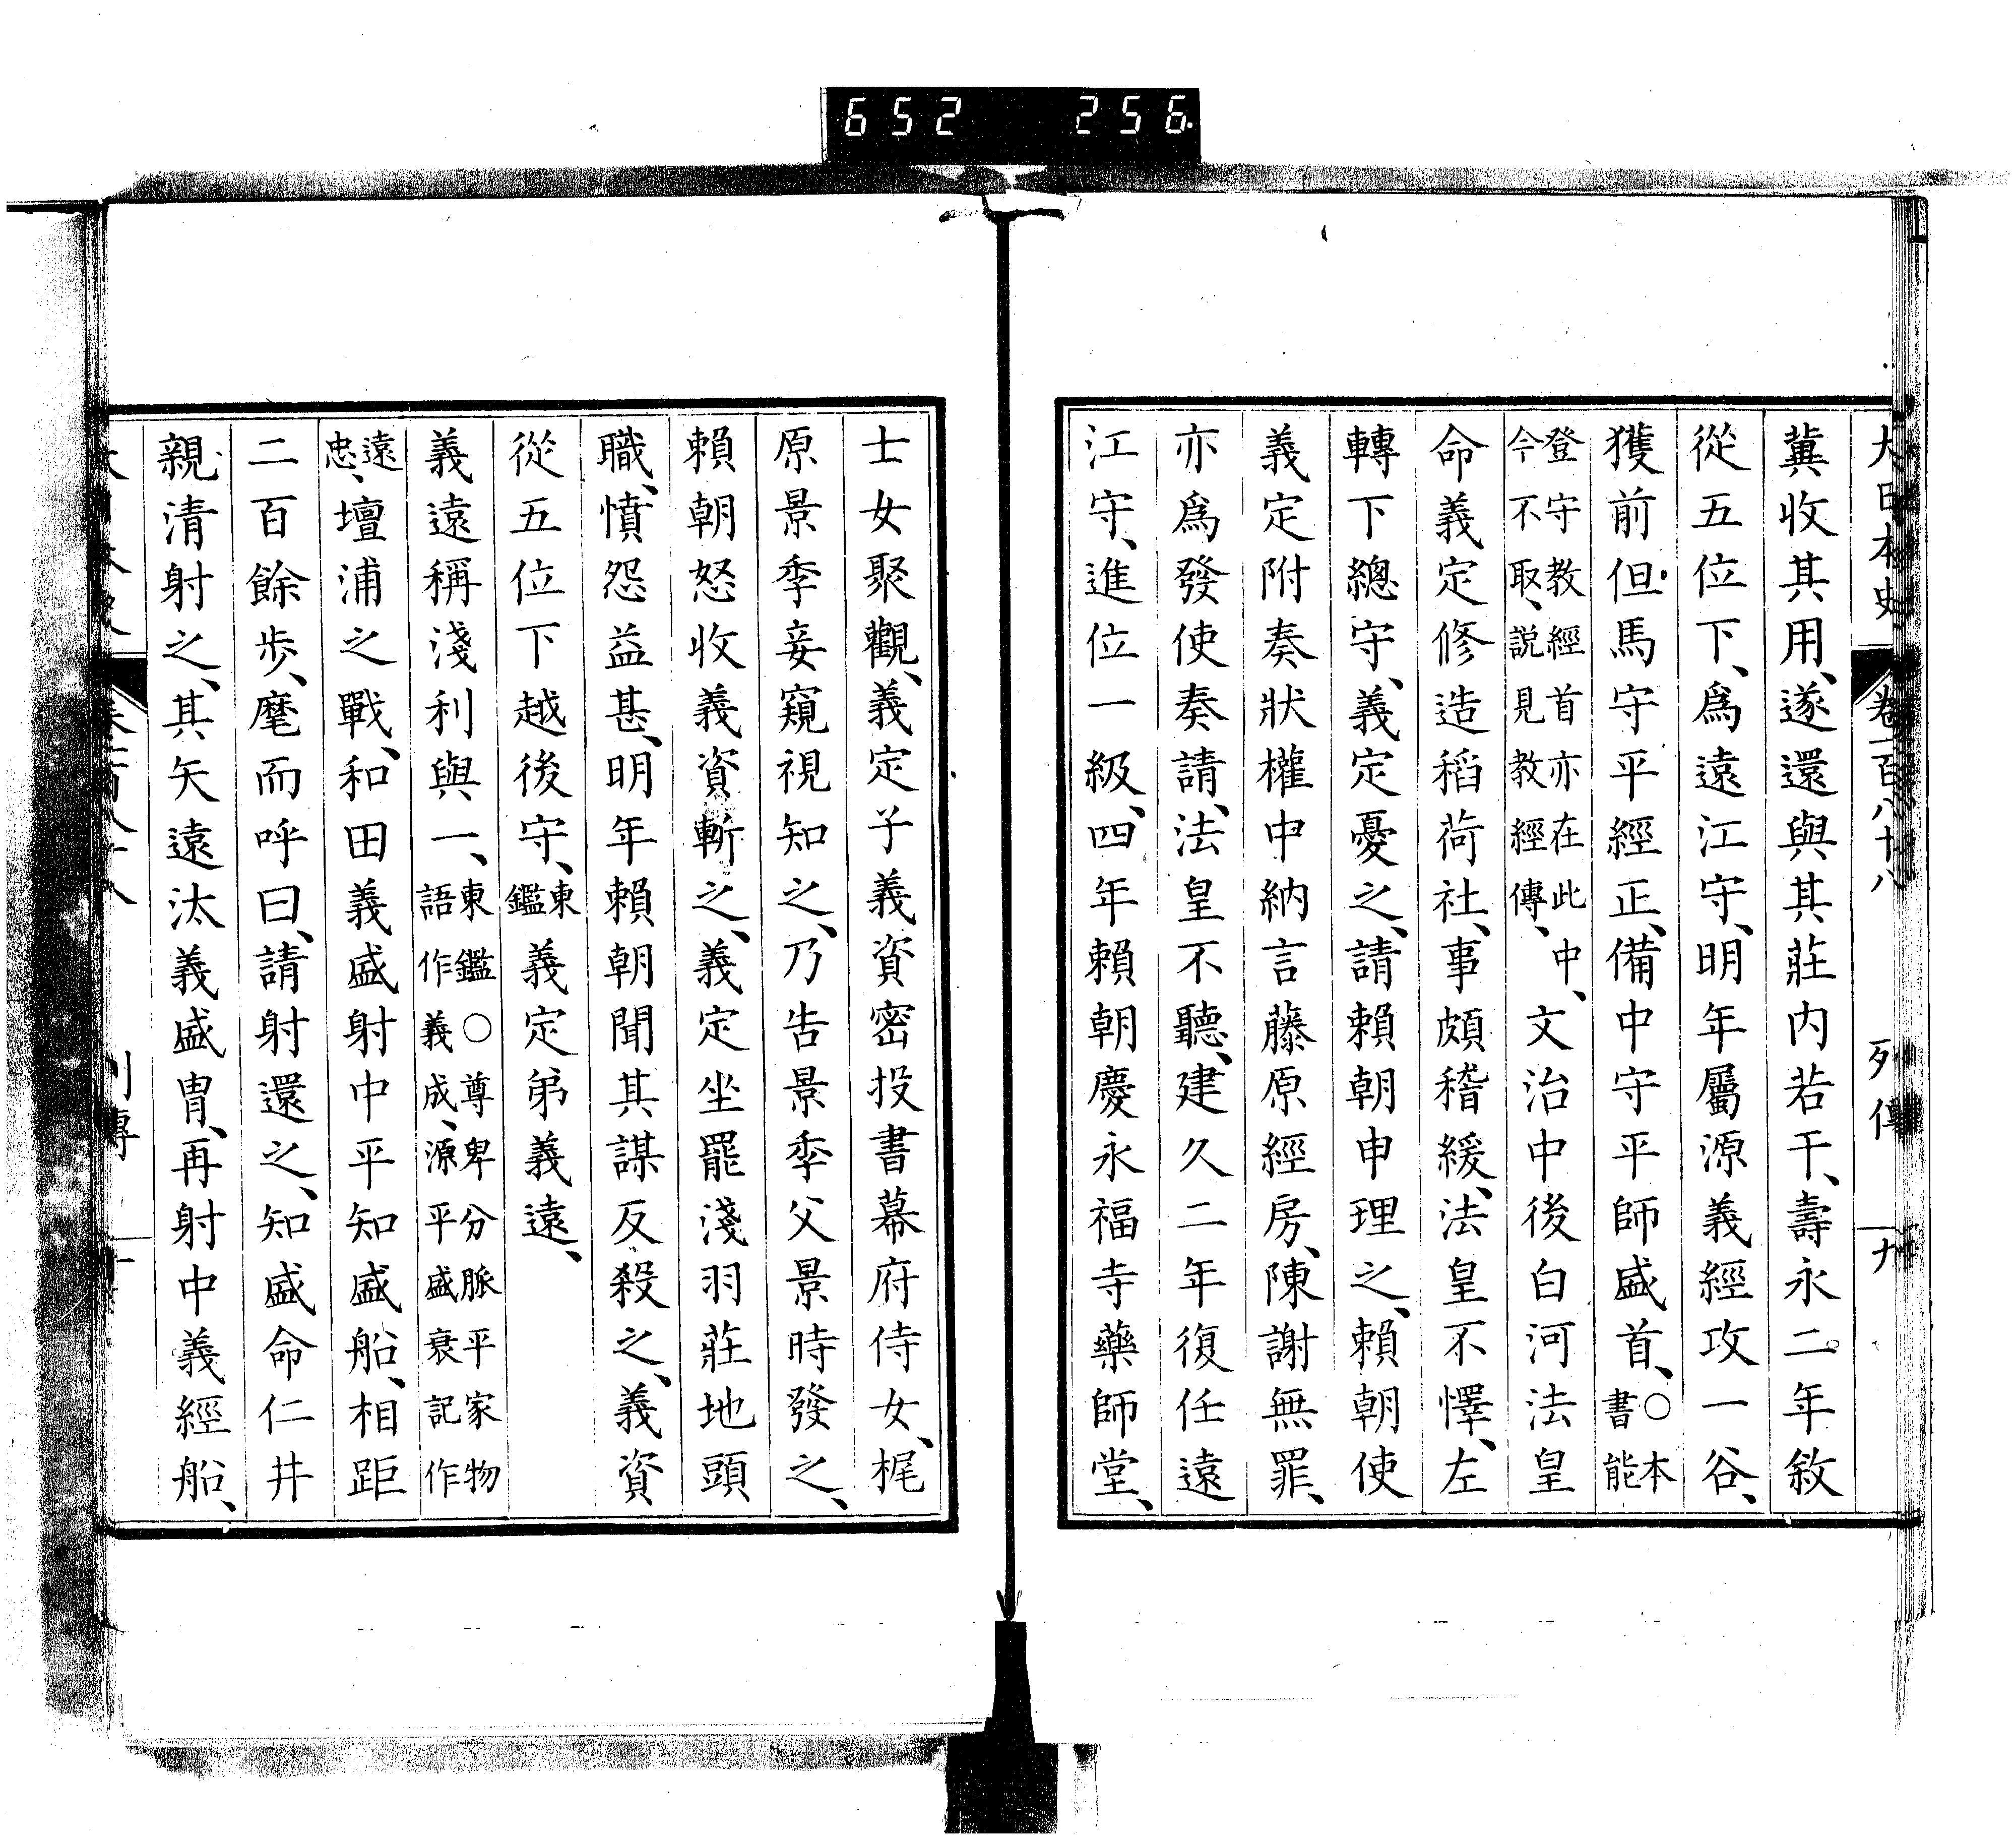 652 256.
大日本史 卷一百八十八 列傳 九
冀收其用、遂還與其莊内若干、壽永二年敘
從五位下、爲遠江守、明年屬源義經攻一谷、
獲前但馬守平經正、備中守平師盛首、○本書能
登守教經首亦在此中、今不取、説見教經傳、文治中後白河法皇
命義定修造稻荷社、事頗稽緩、法皇不懌、左
轉下總守、義定憂之、請賴朝申理之、賴朝使
義定附奏狀權中納言藤原經房、陳謝無罪、
亦爲發使奏請、法皇不聽、建久二年復任遠
江守、進位一級、四年賴朝慶永福寺藥師堂、
士女聚觀、義定子義資密投書幕府侍女、梶
原景季妾窺視知之、乃告景季父景時發之、
賴朝怒收義資斬之、義定坐罷淺羽莊地頭
職、憤怨益甚、明年賴朝聞其謀反殺之、義資
從五位下越後守、東鑑義定弟義遠、
義遠稱淺利與一、東鑑○尊卑分脈平家物語作義成、源平盛衰記作
遠忠、壇浦之戰、和田義盛射中平知盛船、相距
二百餘步、麾而呼曰、請射還之、知盛命仁井
親清射之、其矢遠汰義盛冑、再射中義經船、